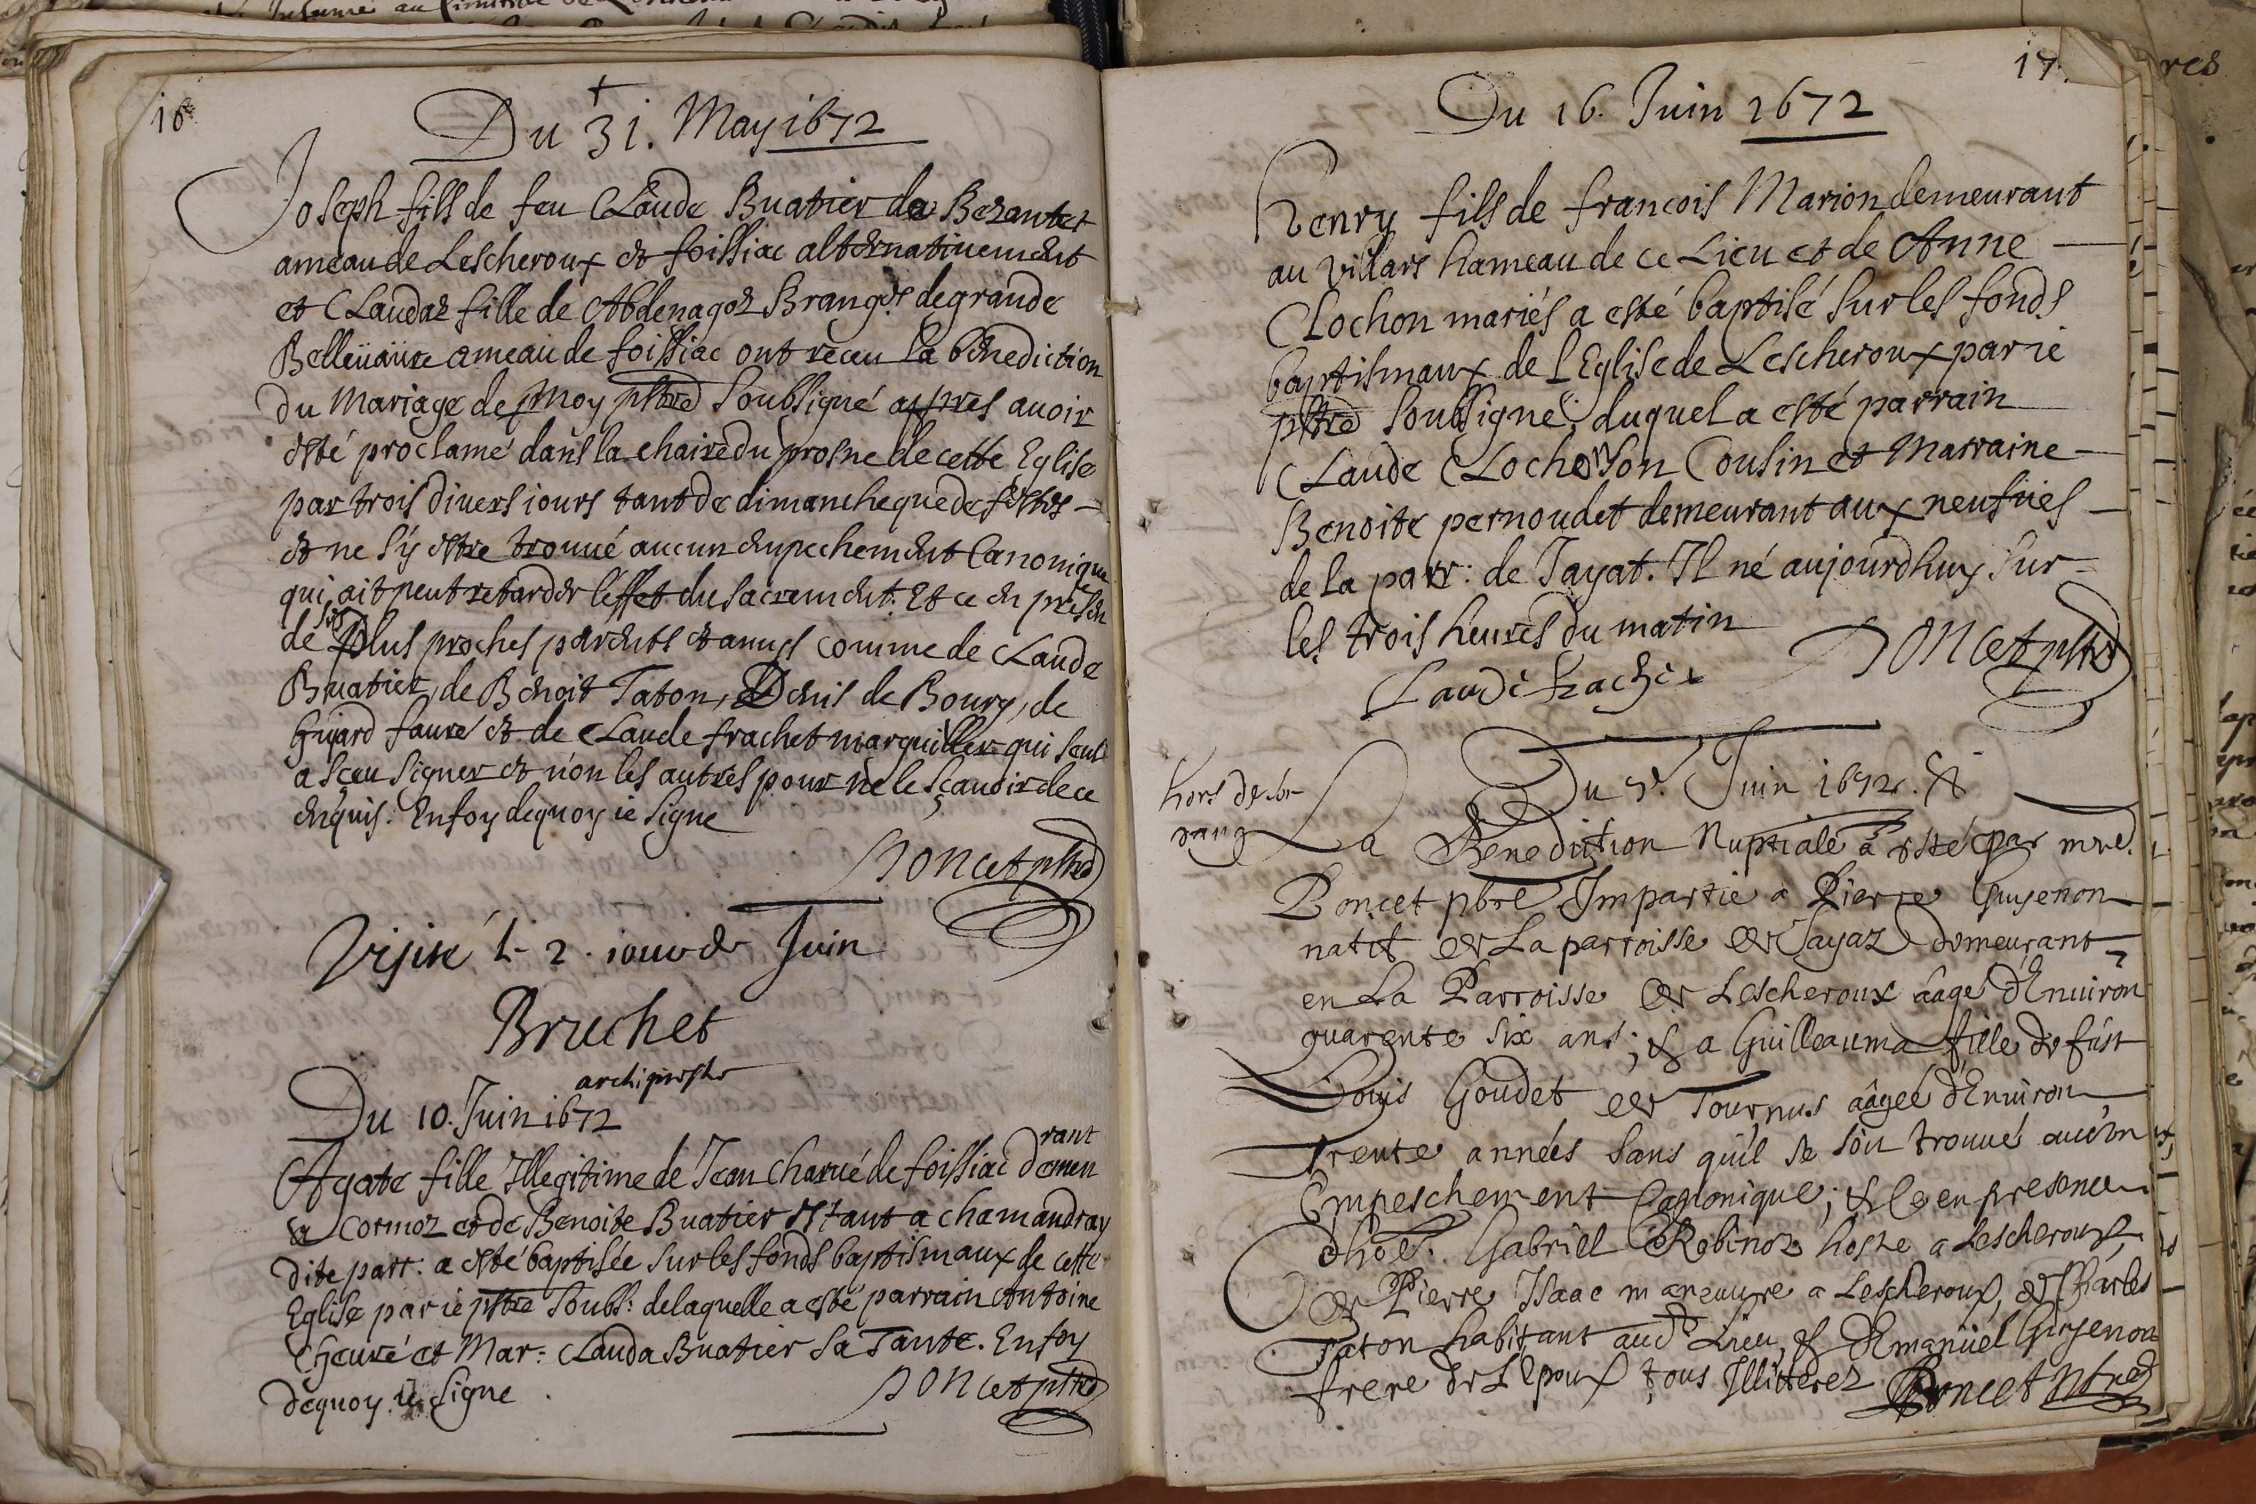 16
Du 31. May 1672
Joseph fils de feu Claude Buatier de Bezantet
ameau de Lescheroux et foissiac alternativement
et Claudaz fille de Abdenagoz Brangs de grande
Belleuaure ameau de foissiac ont receu la benediction
du Mariage de Moy pbre soubsigné appres auoir
esté proclamé dans la chaire du prosne de cette Eglise
par trois divers iours tant de dimanche que de festes
et ne s'y estre trouué aucun empechement Canonique
qui ait peut retarder l'effet du sacrement. Et ce en presen
de ses plus proches parents et amys comme de Claude
Buatier, de Benoit Taton, Denis de Boury, de
Guyard faure et de Claude frachet marguillier qui seul
a sceu signer et non les autres pour ne le sçauoir de ce
enquis. En foy dequoy ie signe
Poncet pbre
Visité le 2. iour de Juin
Bruchet
archiprestre
Du 10. Juin 1672
Agate fille Illegitime de Jean Charué de foissiac demeu
rant
a Cormoz et de Benoite Buatier estant a chamandray
dite parr: a esté baptisée sur les fonds baptismaux de cette
Eglise par ie pbre soubs: de laquelle a esté parrain Antoine
Cheuré et Mar: Clauda Buatier sa Tante. En foy
dequoy ie signe
Poncet pbre
17.
Du 16. Juin 1672
Henry fils de francois Marion demeurant
au villars hameau de ce Lieu et de Anne
Clochon mariés a esté baptisé sur les fonds
baptismaux de l'Eglise de Lescheroux par ie
pbre soubsigné, duquel a esté parrain
Claude Clochon son Cousin et Marraine
Benoite pernoudet demeurant aux neufues
de la parr: de Jayat. Il né aujourdhuy sur
les trois heures du matin
Claude frachet
Poncet pbre
hors de son
rang
Du Juin 1672.
La Benediction Nuptiale a esté par mre
Poncet pbre Impartie a Pierre Guyenon
natif de La parroisse de Jayaz demeurant
en La Parroisse de Lescheroux âagé d'Enuiron
quarente six ans; & a Guilleauma fille de fust
Louis Goudet de Tournus âagée d'Enuiron
trente années sans qu'il se soit trouué aucun
Empeschement Canonique; & Ce en presence
d'hoe. Gabriel Robinoz hoste a Lescheroux
de Pierre Isaac maneuure a Lescheroux, de Charles
Taton habitant aud Lieu, & d'Emanuel Guyenon
frere de L'Epoux tous Illiterez
Poncet pbre